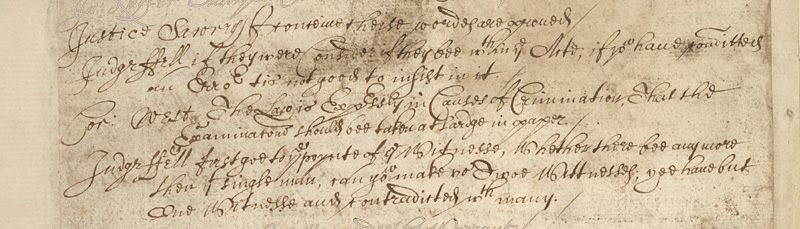 Justice Sawrey I conceive theise wordes are proved
Judge ffell if they were, consider if they bee wthin ye Acte, if yo have comitted
an Erro tis not good to insist in it.
Coll: West The Law is Expresse in Causes of Crimination, That the
Examinations should bee taken at Large in paper
Judge ffell first goe to ye pointe of ye Witnesse, Whether there bee any more
then ye single man, can yo make vp Twoe Wittnesses, yee have but
One Witnesse and contradicted wth many.